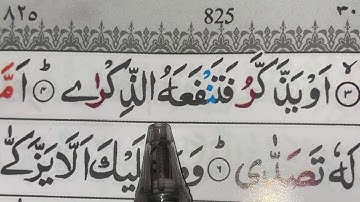 ٨٢٥ 825 ٣٠
٣ اَوْ يَذَّكَّرُ فَتَنْفَعَهُ الذِّكْرٰى ؕ ٤ اَمَّ
لَهٗ تَصَدّٰى ؕ ٦ وَمَ لَيْكَ اَلَّا يَزَّكّٰى